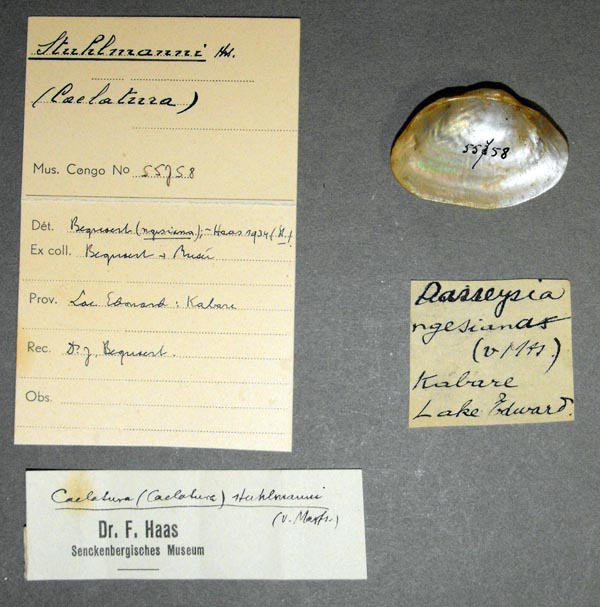 Stuhlmanni Mts.
(Caelatura)
Mus. Congo No 55758
Dét. Bequaert (ngesiana); - Haas 1934
Ex coll. Bequaert +
Prov. Lac Edouard : Kabare
Rec. Dr J. Bequaert.
Obs.
55758
Parreysia
ngesianas
(v Mts.)
Kabare
Lake Edward.
Caelatura (Caelatura) stuhlmanni
(v. Marts.)
Dr. F. Haas
Senckenbergisches Museum